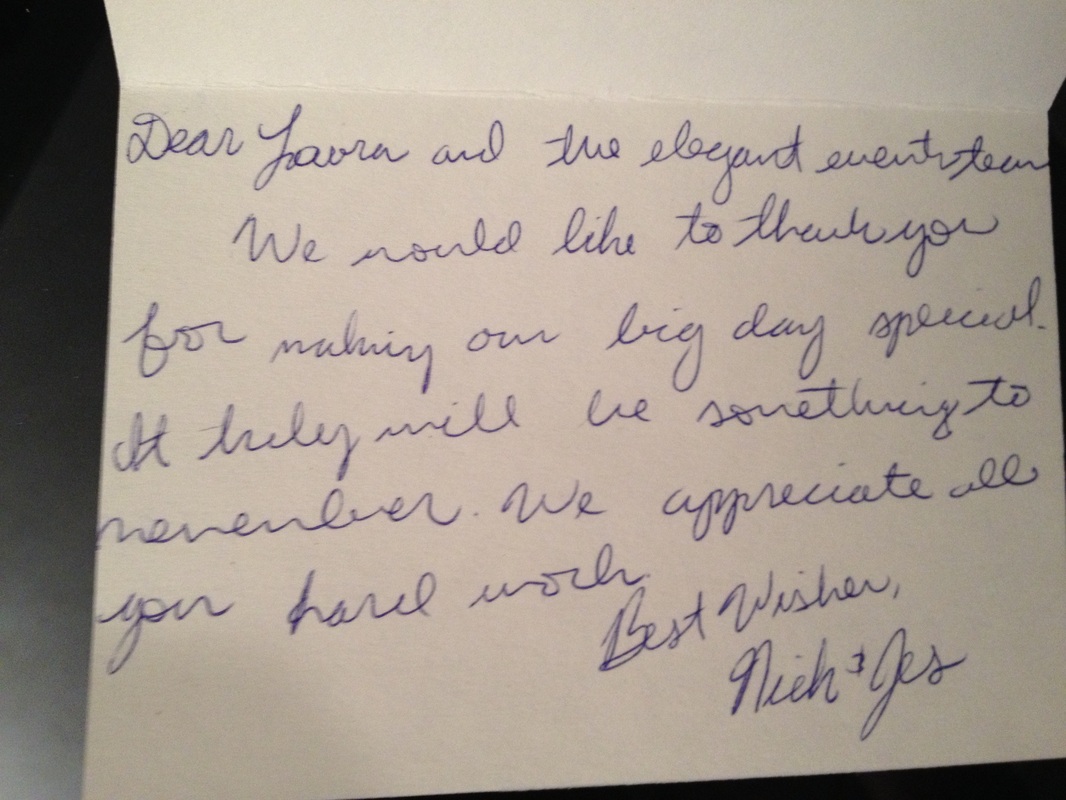 Dear Laura and the elegant events team
We would like to thank you
for making our big day special.
It truly will be something to
remember. We appreciate all
your hard work.
Best Wishes,
Nick & Jes